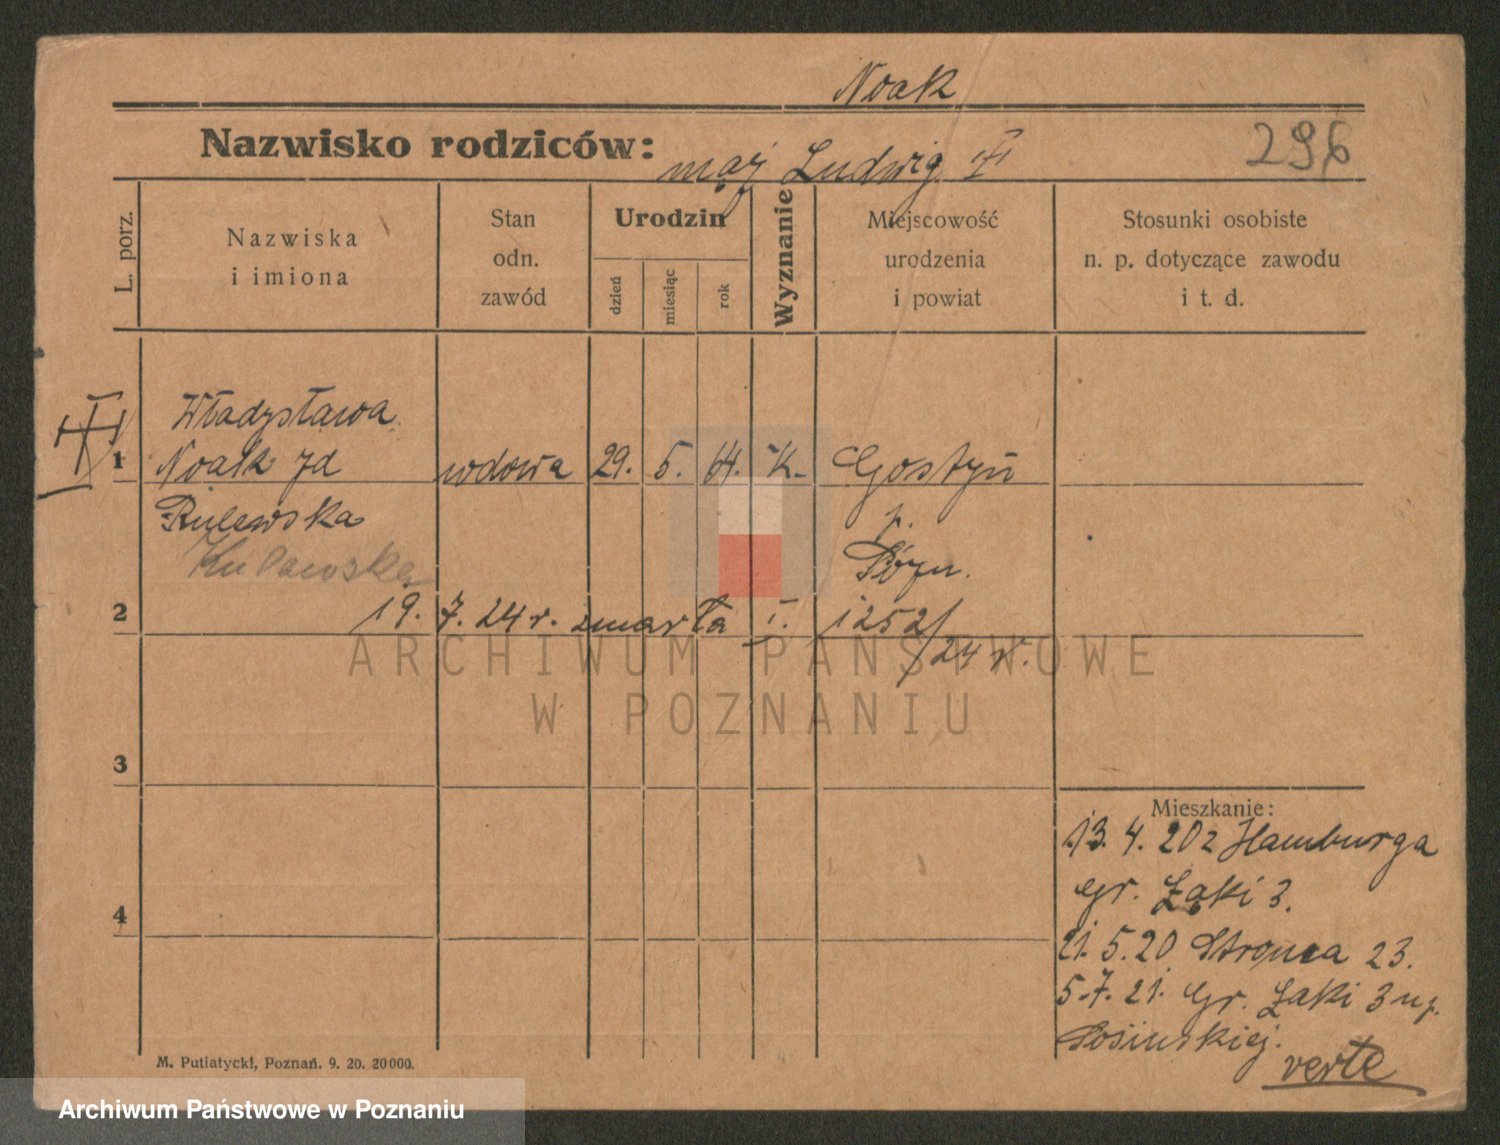 Noak
Nazwisko rodziców: mąż Ludwig †
296
L. porz.
Nazwiska
i imiona
Stan
odn.
zawód
Urodzin
dzień
miesiąc
rok
Wyznanie
Miejscowość
urodzenia
i powiat
Stosunki osobiste
n. p. dotyczące zawodu
i t. d.
Władysława
1 Noak zd wdowa 29. 5. 44. K. Gostyń
Rulewska p.
Kulawska Pozn.
2 19. 7. 24 r. zmarła i. 1252/
/24 r.
3
4
Mieszkanie:
13. 4. 20 z Hamburga
Gr. Łąki 3.
21. 5. 20 Stroma 23.
5. 7. 21. Gr. Łąki 3 u p.
Łosińskiej.
verte
M. Putiatycki, Poznań. 9. 20. 20000.
ARCHIWUM PAŃSTWOWE
W POZNANIU
Archiwum Państwowe w Poznaniu